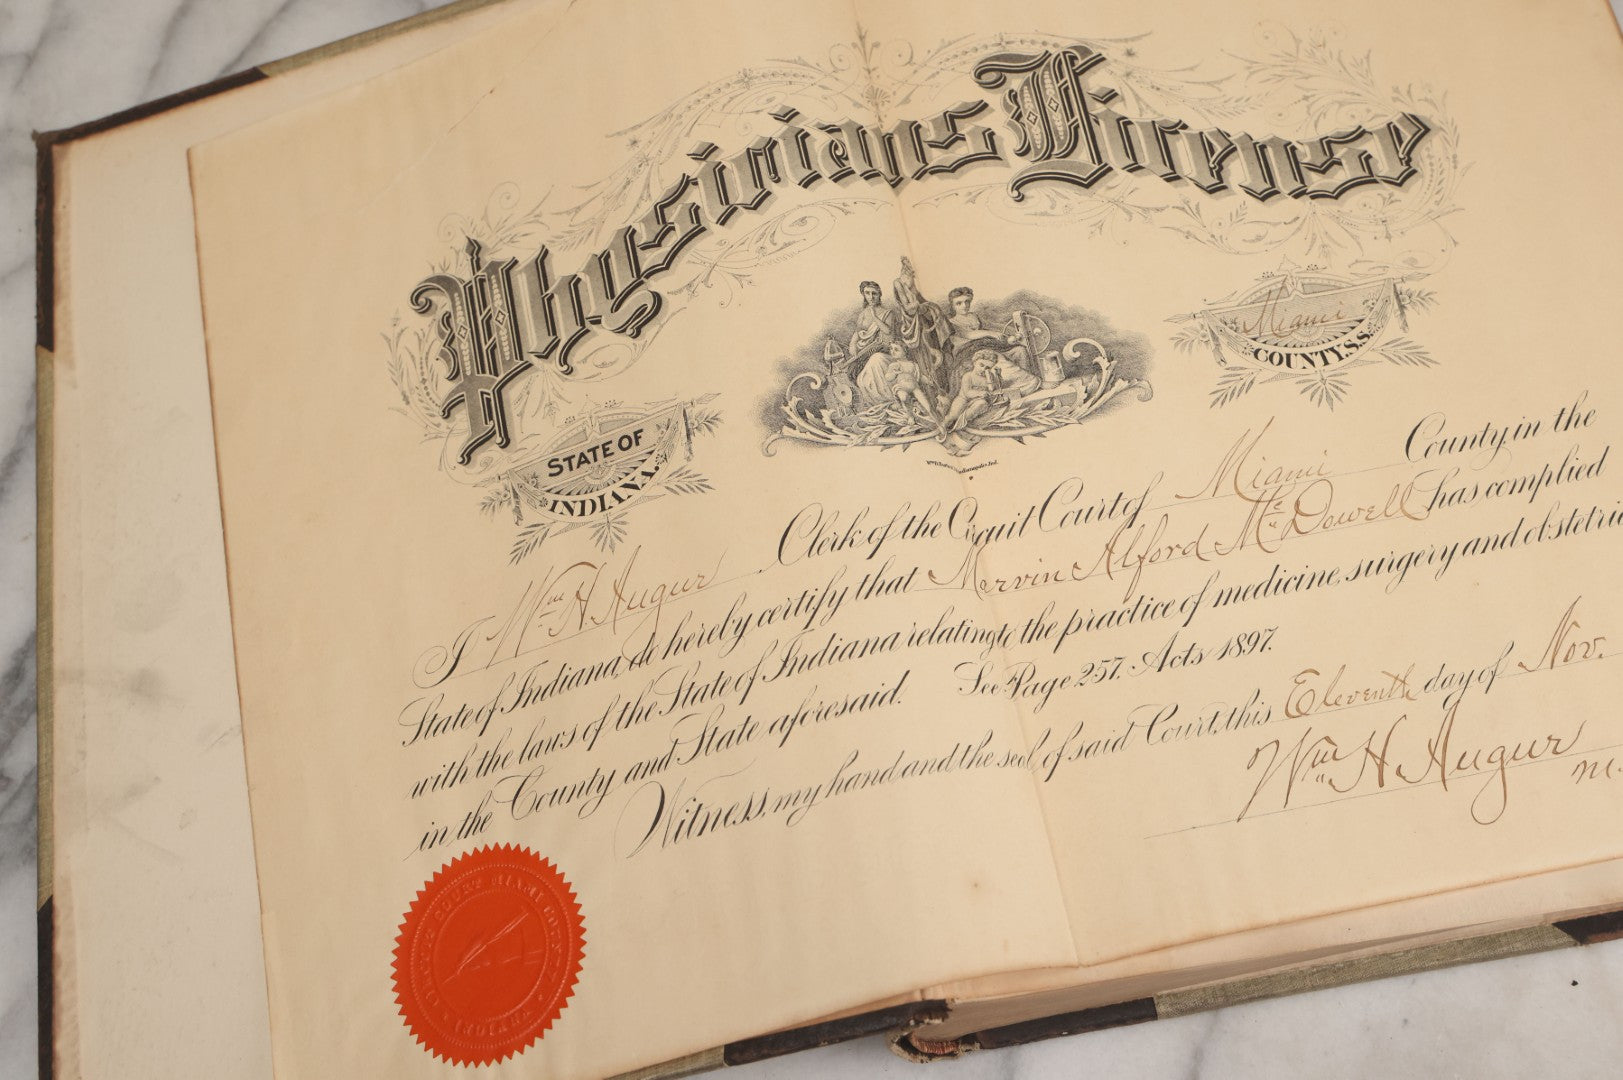 Physicians License
STATE OF
INDIANA.
Miami
COUNTY. S.S.
I Wm. H. Augur Clerk of the Circuit Court of Miami County, in the
State of Indiana, do hereby certify that Mervin Alford McDowell has complied
with the laws of the State of Indiana relating to the practice of medicine, surgery and obstetric
in the County and State aforesaid. See Page 257. Acts 1897.
Witness, my hand, and the seal, of said Court, this Eleventh day of Nov.
Wm. H. Augur
CIRCUIT COURT MIAMI COUNTY
INDIANA